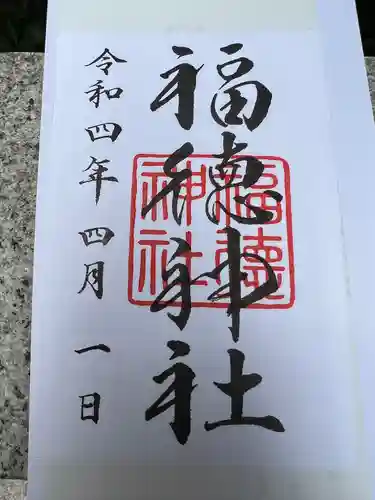 福徳神社
福徳神社
令和四年四月一日